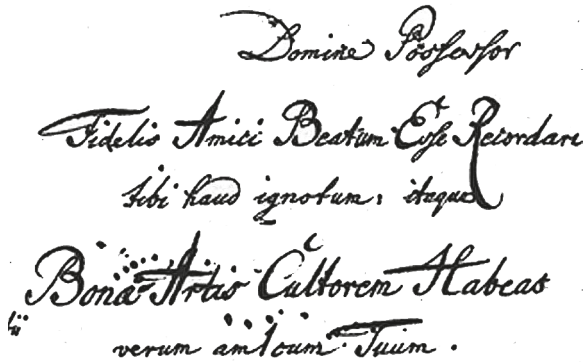 Domine Possessor
Fidelis Amici Beatum Esse Recordari
tibi haud ignotum; itaque
Bonæ Artis Cultorem Habeas
verum amicum Tuum.